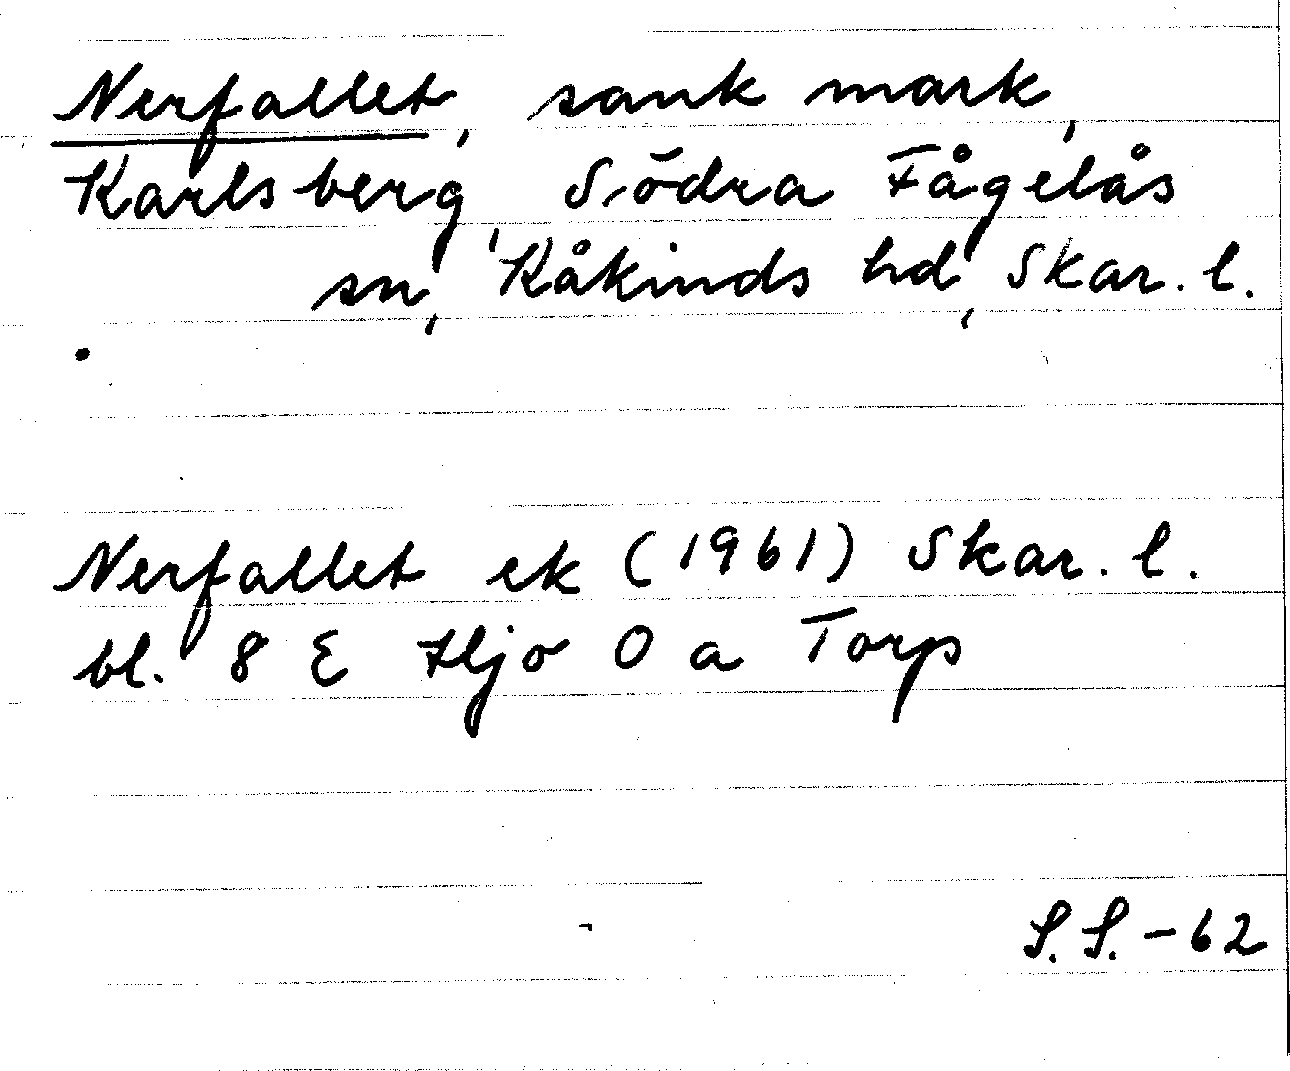 Nerfallet, sank mark,
Karlsberg, Södra Fågelås
sn, Kåkinds hd, Skar. l.
Nerfallet ek (1961) Skar. l.
bl. 8 E Hjo 0 a Torp
S.S.-62